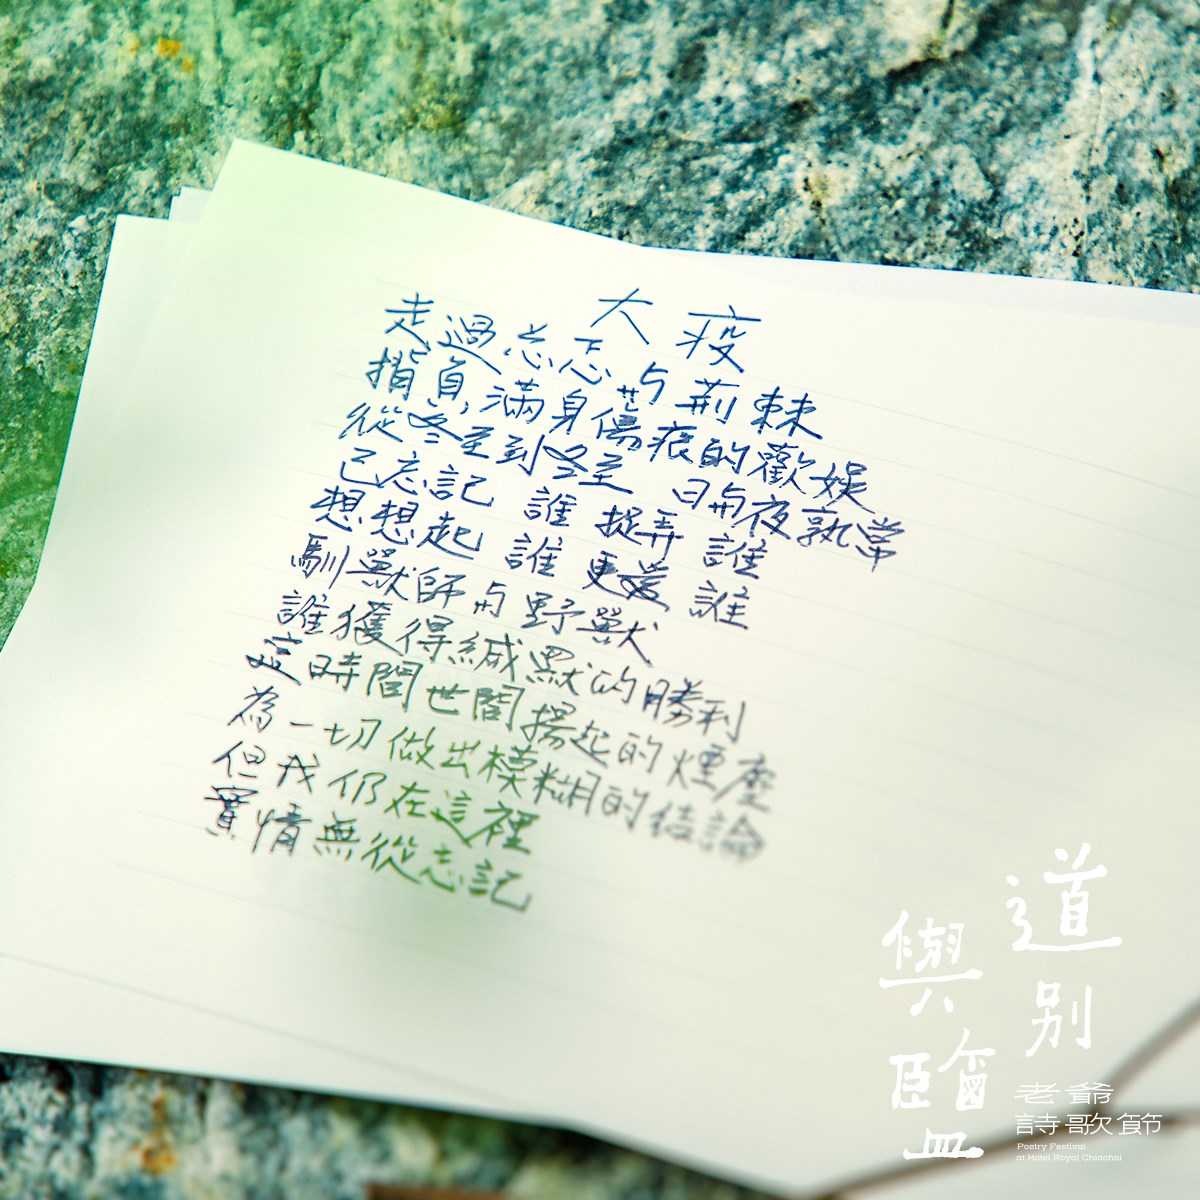 大疫
走過忐忑与荊棘
揹負滿身傷痕的歡娛
從冬至到冬至 日与夜孰常
已忘記 誰捉弄誰
想想起 誰更愛誰
馴獸師与野獸
誰獲得緘默的勝利
這時間世間揚起的煙塵
為一切做出模糊的結論
但我仍在這裡
實情無從忘記
道別
與鹽
老爺
詩歌節
Poetry Festival
at Hotel Royal Chiaohsi